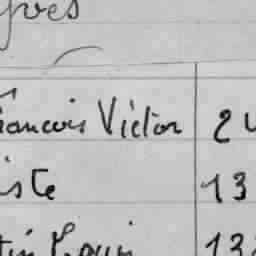 Yves
François Victor 24
iste 13
tin Louis 13